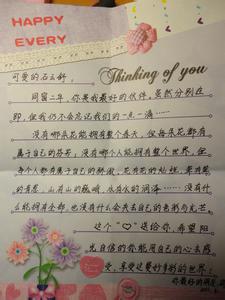 HAPPY
EVERY
可爱的石云舒：
Thinking of you
同窗二年，你是我最好的伙伴，虽然分别在
即，但我仍不会忘记我们的一点一滴……
没有哪朵花能拥有整个春天，但每朵花都有
属于自己的芬芳，没有哪个人能拥有整个世界，但
每个人都有属于自己的骄傲，花有花的灿烂，草有草
的清香，山有山的巍峨，水有水的润泽……没有什
么能拥有全部，也没有什么会失去自己的色彩与光芒
这个“♡”送给你，希望阳
光自信的你能用自己的心去感
受，享受这美好多彩的世界！
你最好的朋友